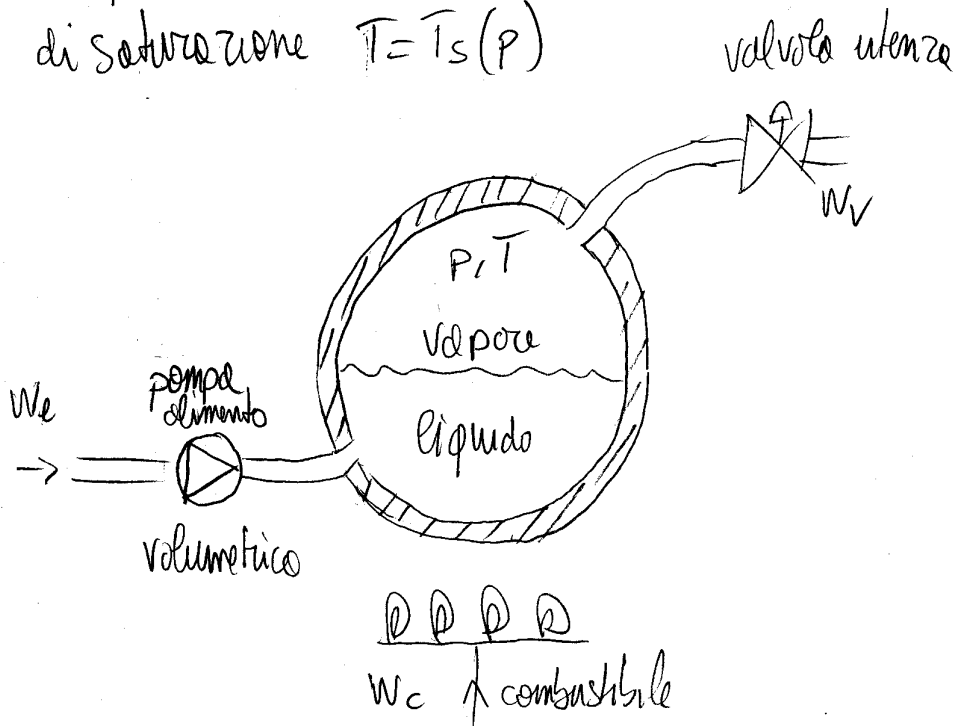 di saturazione T = Ts(p)
valvola utenza
wv
p, T
vapore
liquido
we
pompa
alimento
volumetrica
wc combustibile